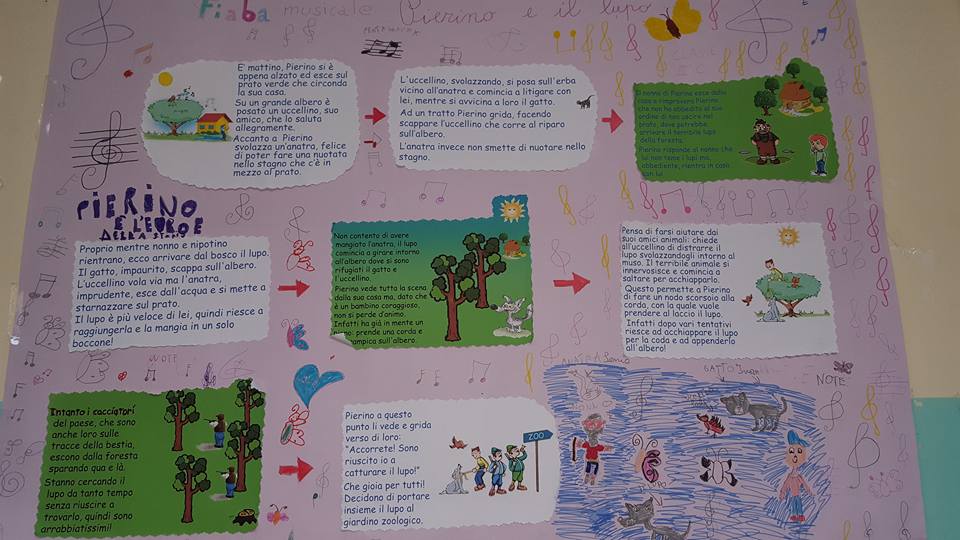 Fiaba musicale Pierino e il lupo
E' mattino, Pierino si è
appena alzato ed esce sul
prato verde che circonda
la sua casa.
Su un grande albero è
posato un uccellino, suo
amico, che lo saluta
allegramente.
Accanto a Pierino
svolazza un'anatra, felice
di poter fare una nuotata
nello stagno che c'è in
mezzo al prato.
L'uccellino, svolazzando, si posa sull'erba
vicino all'anatra e comincia a litigare con
lei, mentre si avvicina a loro il gatto.
Ad un tratto Pierino grida, facendo
scappare l'uccellino che corre al riparo
sull'albero.
L'anatra invece non smette di nuotare nello
stagno.
Il nonno di Pierino esce dalla
casa e rimprovera Pierino
che non ha obbedito al suo
ordine di non uscire nel
prato, dove potrebbe
arrivare il terribile lupo
della foresta.
Pierino risponde al nonno che
lui non teme i lupi ma,
obbediente, rientra in casa
con lui
PIERINO
È L'EROE
DELLA
Proprio mentre nonno e nipotino
rientrano, ecco arrivare dal bosco il lupo.
Il gatto, impaurito, scappa sull'albero.
L'uccellino vola via ma l'anatra,
imprudente, esce dall'acqua e si mette a
starnazzare sul prato.
Il lupo è più veloce di lei, quindi riesce a
raggiungerla e la mangia in un solo
boccone!
Non contento di avere
mangiato l'anatra, il lupo
comincia a girare intorno
all'albero dove si sono
rifugiati il gatto e
l'uccellino.
Pierino vede tutta la scena
dalla sua casa ma, dato che
è un bambino coraggioso,
non si perde d'animo.
Infatti ha già in mente un
prende una corda e
sull'albero.
Pensa di farsi aiutare dai
suoi amici animali: chiede
all'uccellino di distrarre il
lupo svolazzandogli intorno al
muso. Il terribile animale si
innervosisce e comincia a
saltare per acchiapparlo.
Questo permette a Pierino
di fare un nodo scorsoio alla
corda, con la quale vuole
prendere al laccio il lupo.
Infatti dopo vari tentativi
riesce ad acchiappare il lupo
per la coda e ad appenderlo
all'albero!
NOTE
GATTO
NOTE
Intanto i cacciatori
del paese, che sono
anche loro sulle
tracce della bestia,
escono dalla foresta
sparando qua e là.
Stanno cercando il
lupo da tanto tempo
senza riuscire a
trovarlo, quindi sono
arrabbiatissimi!
Pierino a questo
punto li vede e grida
verso di loro:
"Accorrete! Sono
riuscito io a
catturare il lupo!"
Che gioia per tutti!
Decidono di portare
insieme il lupo al
giardino zoologico.
ZOO